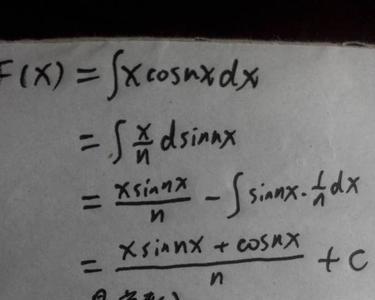 F(X) = ∫xcosnxdx
= ∫ x/n dsinnx
= xsinnx/n - ∫sinnx·1/n dx
= (xsinnx + cosnx)/n + c